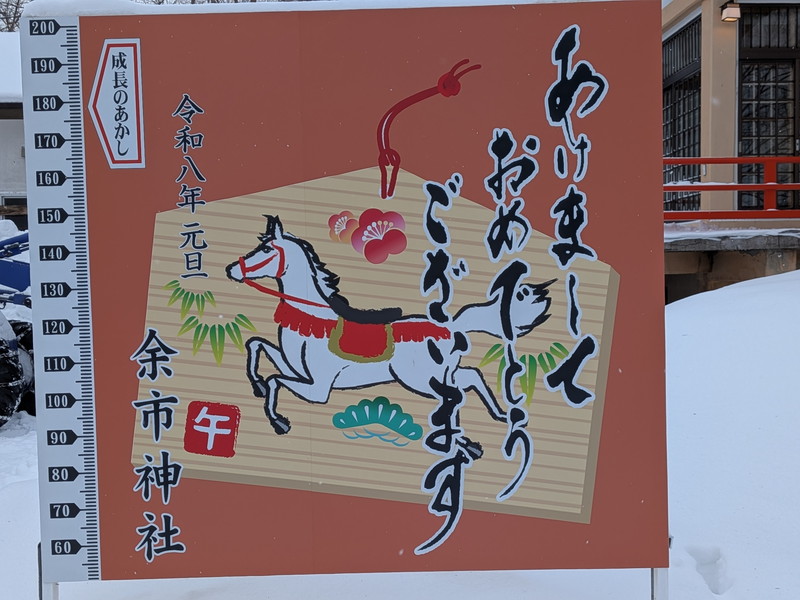 あけまして
おめでとう
ございます
令和八年 元旦
余市神社
午
成長のあかし
200
190
180
170
160
150
140
130
120
110
100
90
80
70
60